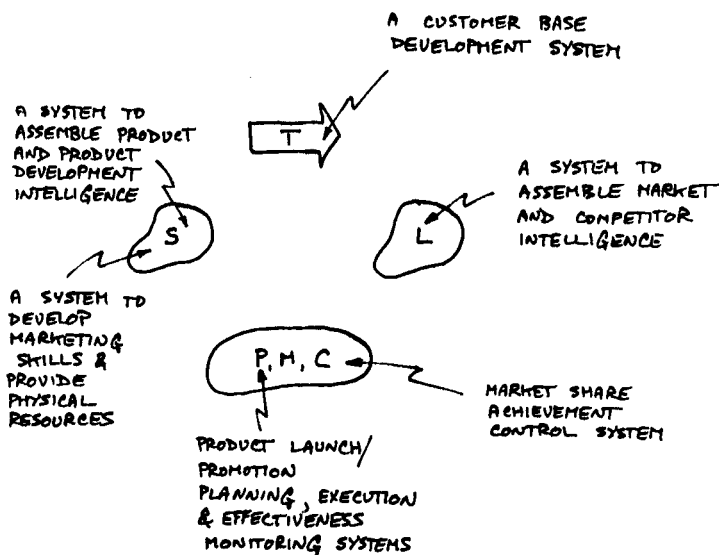 A CUSTOMER BASE
DEVELOPMENT SYSTEM
A SYSTEM TO
ASSEMBLE PRODUCT
AND PRODUCT
DEVELOPMENT
INTELLIGENCE
T
A SYSTEM TO
ASSEMBLE MARKET
AND COMPETITOR
INTELLIGENCE
S
L
A SYSTEM TO
DEVELOP
MARKETING
SKILLS &
PROVIDE
PHYSICAL
RESOURCES
P, M, C
MARKET SHARE
ACHIEVEMENT
CONTROL SYSTEM
PRODUCT LAUNCH/
PROMOTION
PLANNING, EXECUTION
& EFFECTIVENESS
MONITORING SYSTEMS